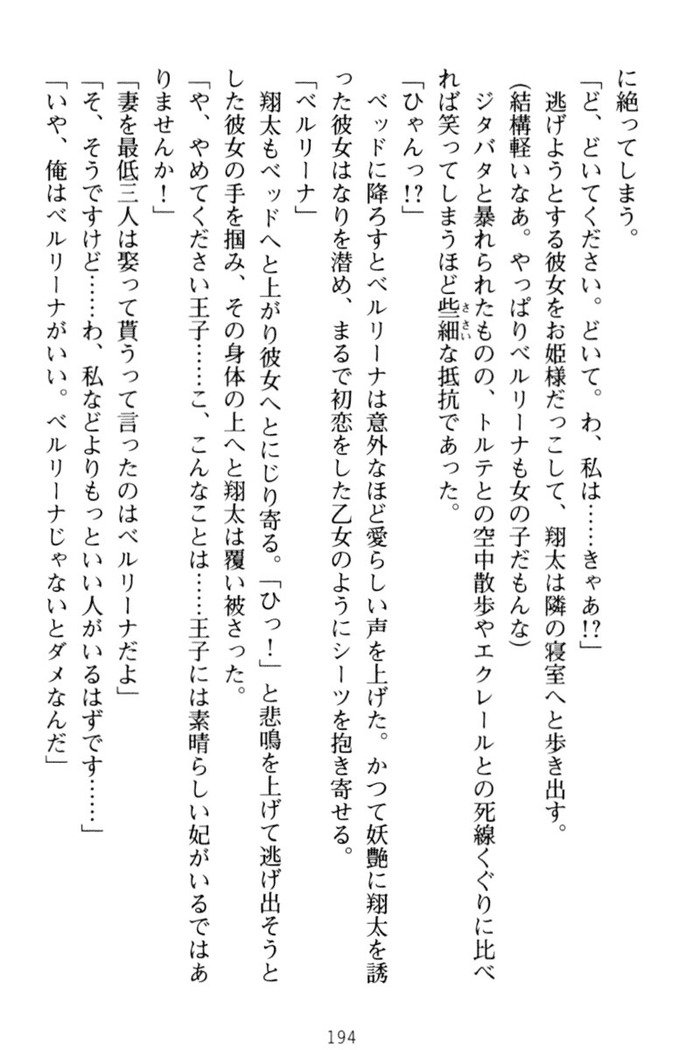 に絶ってしまう。
「ど、どいてください。どいて。わ、私は……きゃあ!?」
逃げようとする彼女をお姫様だっこして、翔太は隣の寝室へと歩き出す。
(結構軽いなぁ。やっぱりベルリーナも女の子だもんな)
ジタバタと暴れられたものの、トルテとの空中散歩やエクレールとの死線くぐりに比べ
れば笑ってしまうほど些細ささいな抵抗であった。
「ひゃんっ!?」
ベッドに降ろすとベルリーナは意外なほど愛らしい声を上げた。かつて妖艶に翔太を誘
った彼女はなりを潜め、まるで初恋をした乙女のようにシーツを抱き寄せる。
「ベルリーナ」
翔太もベッドへと上がり彼女へとにじり寄る。「ひっ！」と悲鳴を上げて逃げ出そうと
した彼女の手を掴み、その身体の上へと翔太は覆い被さった。
「や、やめてください王子……こ、こんなことは……王子には素晴らしい妃がいるではあ
りませんか！」
「妻を最低三人は娶って貰うって言ったのはベルリーナだよ」
「そ、そうですけど……わ、私などよりもっといい人がいるはずです……」
「いや、俺はベルリーナがいい。ベルリーナじゃないとダメなんだ」
194